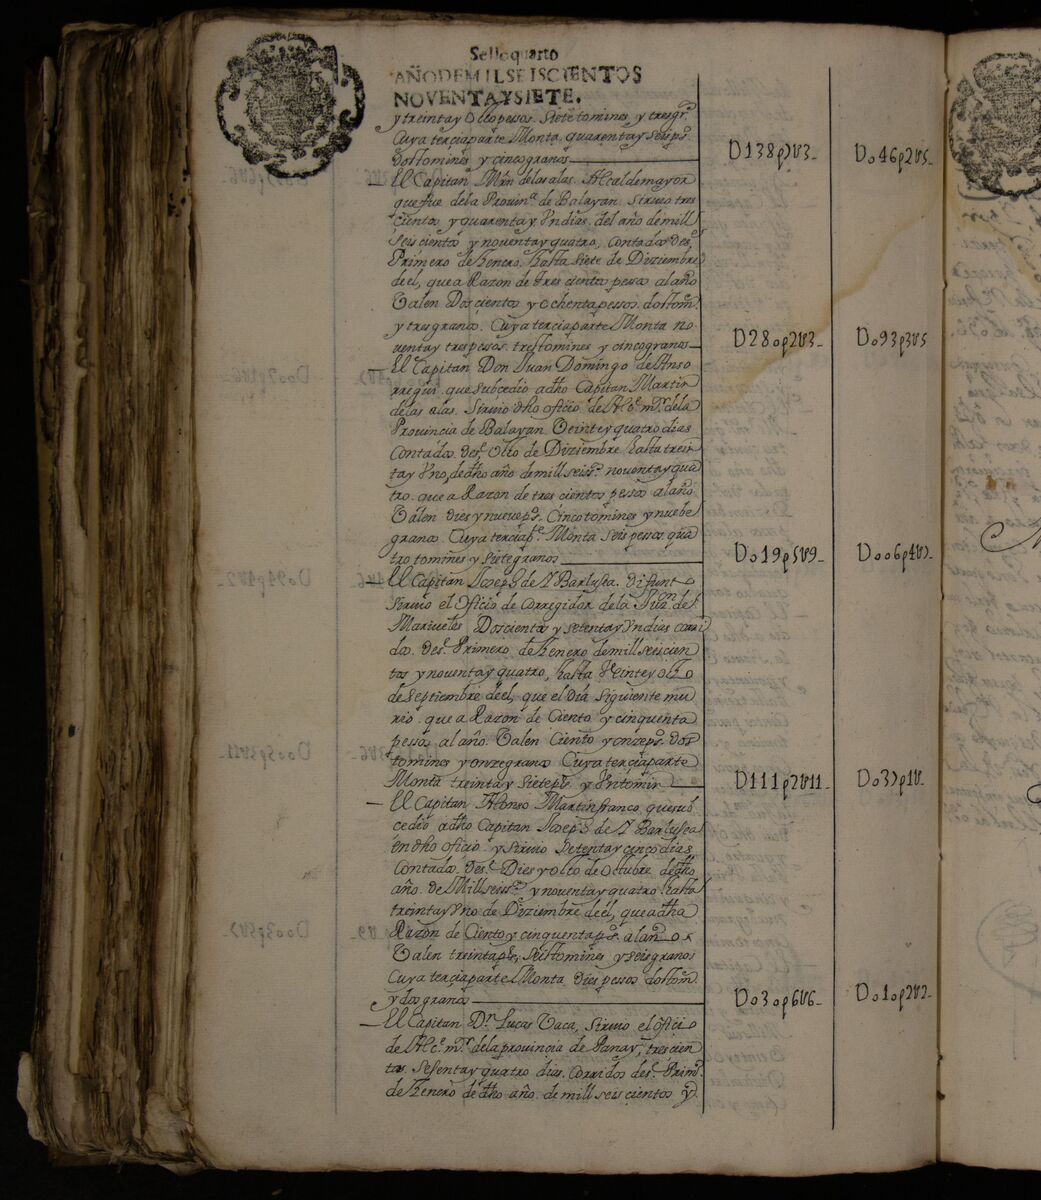 Sello quarto
AÑO DE MIL SEISCIENTOS
NOVENTA Y SIETE.
y treinta y Ocho pesos. Siete tomines, y tres gr.ˢ
Cuya tercia parte Monta quarenta y seis p.ˢ
dos tomines y cinco granos — D138p7U3 — Do46p2U5
El Capitan Mrn de las alas. Alcalde mayor
que fue de la Prouin.ᵃ de Balayan. Siruio tres
cientos y quarenta y Vn dias. del año de mill
seiscientos y nouenta y quatro, contados des.ᵉ
Primero de henero. hasta siete de Diziembre
de el, que a Razon de tres cientos pesos al año
Valen Doscientos y ochenta pessos. dos tom.ˢ
y tres granos. Cuya tercia parte Monta no
uenta y tres pesos. tres tomines y cinco granos — D280p2U3 — Do93p3U5
El Capitan Don Juan Domingo de Anso
rregui. que subcedio a dho Capitan Martin
de las alas. Siruio dho oficio de Alc.ᵉ m.ʳ de la
Prouincia de Balayan Veinte y quatro dias
Contados des.ᵉ Ocho de Diziembre hasta trein
ta y Vno, de dho año de mill seis.ˢ nouenta y qua
tro. que a Razon de tres cientos pesos al año
Valen dies y nueue p.ˢ. Cinco tomines y nuebe
granos. Cuya tercia p.ᵗᵉ Monta seis pessos qua
tro tomines y siete granos — Do19p5U9 — Doo6p4U7
El Capitan Joseph de Barlusea. difunto
Siruio el Oficio de Corregidor de la Jur.ᵒⁿ de
Mariueles Doscientos y setenta y Vn dias corri
dos. des.ᵉ Primero de henero de mill seiscien
tos y nouenta y quatro, hasta Veinte y ocho
de septiembre de el, que el Dia siguiente mu
rio. que a Razon de Ciento y cinquenta
pessos al año. Valen Ciento y onze p.ˢ dos
tomines y onze granos Cuya tercia parte
Monta treinta y siete p.ˢ y Vn tomin — D111p2U11 — Do37p1U
El Capitan Alonso Martin franco, que sub
cedio a dho Capitan Joseph de Barlusea
en dho oficio. y Siruio Setenta y cinco dias
Contados. des.ᵉ Dies y ocho de Octubre de dho
año. de Mill seis.ˢ y nouenta y quatro hasta
treinta y Vno de Diziembre de el, que a dha
Razon de Ciento y cinquenta p.ˢ al año
Valen treinta p.ˢ, seis tomines y seis granos
Cuya tercia parte Monta Dies pesos dos tom.ˢ
y dos granos — Do30p6U6 — Do10p2U2
El Capitan D.ⁿ Lucas Vaca, Siruio el oficio
de Alc.ᵉ m.ʳ de la prouincia de Panay, trescien
tos sesenta y quatro dias. Corridos des.ᵉ Prim.ᵒ
de henero de dho año. de mill seiscientos y